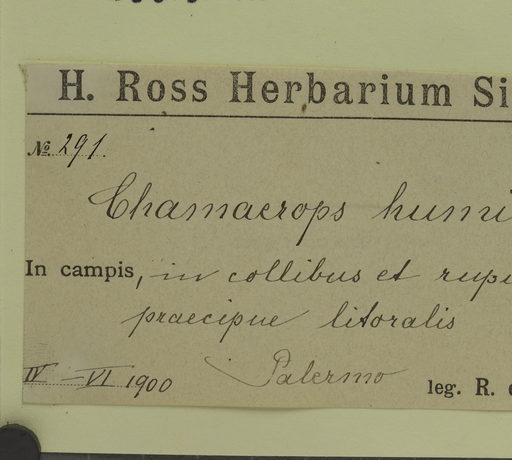 H. Ross Herbarium Si
№ 291.
Chamaerops humi
In campis, in collibus et rupi
praecipue litoralis
IV - VI 1900 Palermo leg. R.